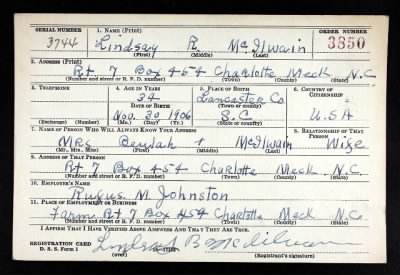 SERIAL NUMBER 1. NAME (Print) ORDER NUMBER
3744 Lindsay R. McIlwain 3850
(First) (Middle) (Last)
2. ADDRESS (Print)
Rt 7 Box 454 Charlotte Meck N.C
(Number and street or R. F. D. number) (Town) (County) (State)
3. TELEPHONE 4. AGE IN YEARS 5. PLACE OF BIRTH 6. COUNTRY OF CITIZENSHIP
34 Lancaster Co
DATE OF BIRTH (Town or county)
Nov. 30 1906 S.C U.S.A
(Exchange) (Number) (Mo.) (Day) (Yr.) (State or country)
7. NAME OF PERSON WHO WILL ALWAYS KNOW YOUR ADDRESS 8. RELATIONSHIP OF THAT PERSON
Mrs Beulah McIlwain Wife
(Mr., Mrs., Miss) (First) (Middle) (Last)
9. ADDRESS OF THAT PERSON
Rt 7 Box 454 Charlotte Meck N.C.
(Number and street or R. F. D. number) (Town) (County) (State)
10. EMPLOYER'S NAME
Rufus M. Johnston
11. PLACE OF EMPLOYMENT OR BUSINESS
Farm Rt 7 Box 454 Charlotte Meck N.C.
(Number and street or R. F. D. number) (Town) (County) (State)
I AFFIRM THAT I HAVE VERIFIED ABOVE ANSWERS AND THAT THEY ARE TRUE.
REGISTRATION CARD
D. S. S. Form 1